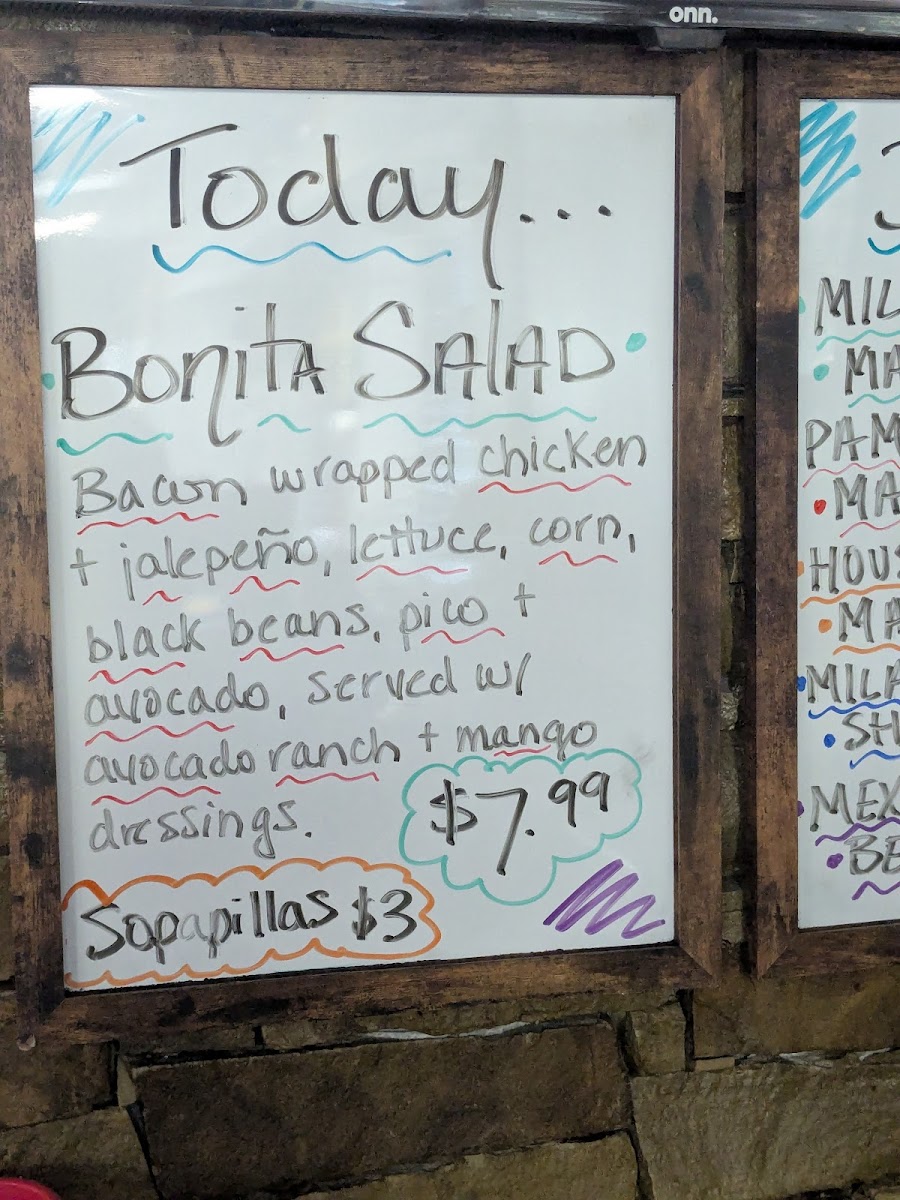 onn.
Today...
BonitA SAlAD
Bacon wrapped chicken
+ jalepeño, lettuce, corn,
black beans, pico +
avocado, served w/
avocado ranch + mango
dressings.
$7.99
Sopapillas $3
MIL
MA
PAM
MA
HOUS
MA
MILA
STR
MEX
BE